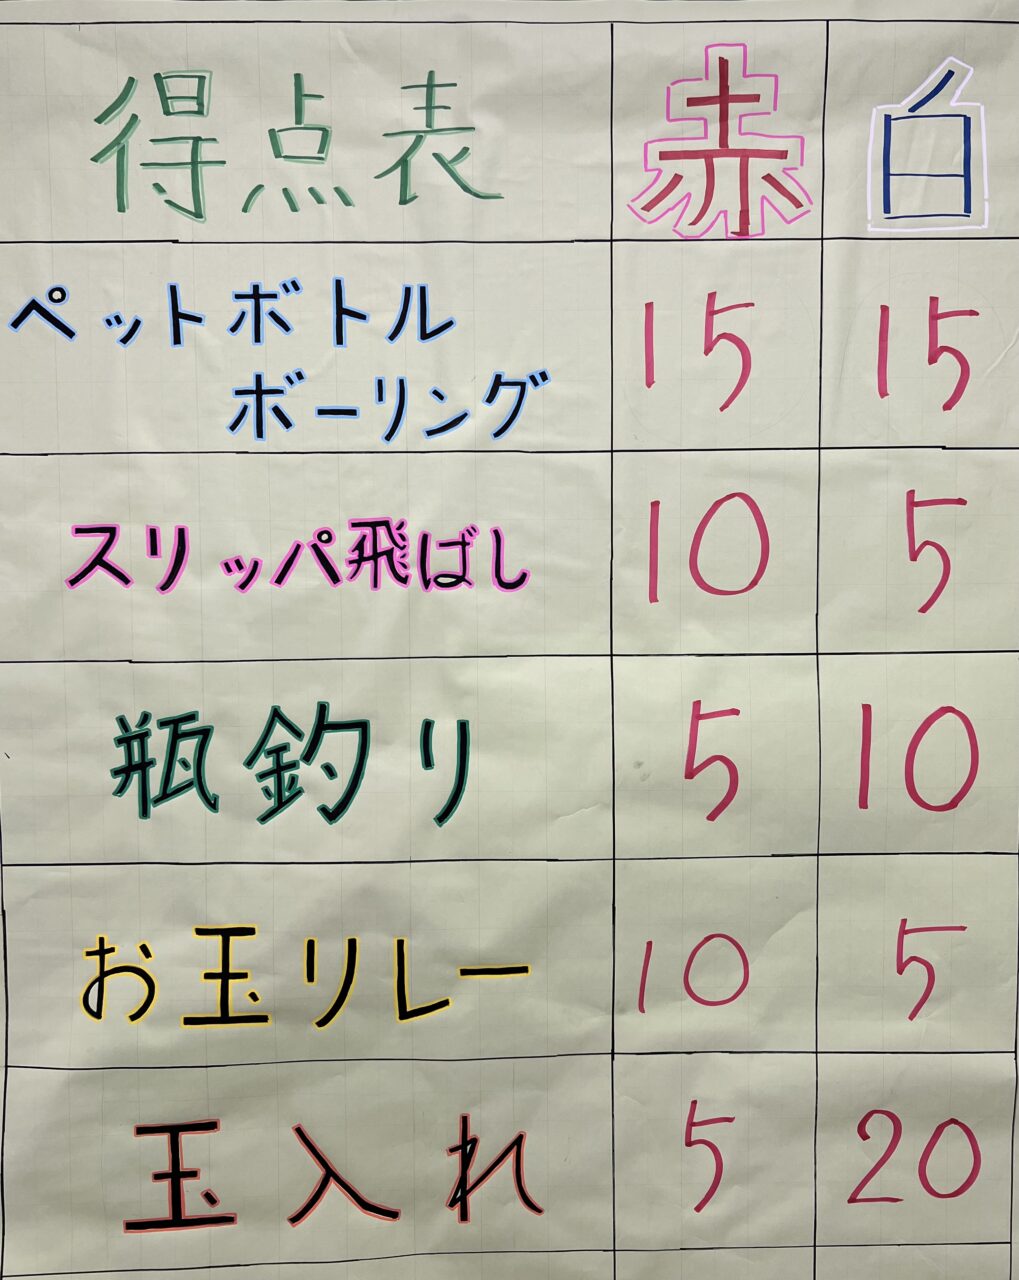 得点表 赤 白
ペットボトル
ボーリング 15 15
スリッパ飛ばし 10 5
瓶釣り 5 10
お玉リレー 10 5
玉入れ 5 20